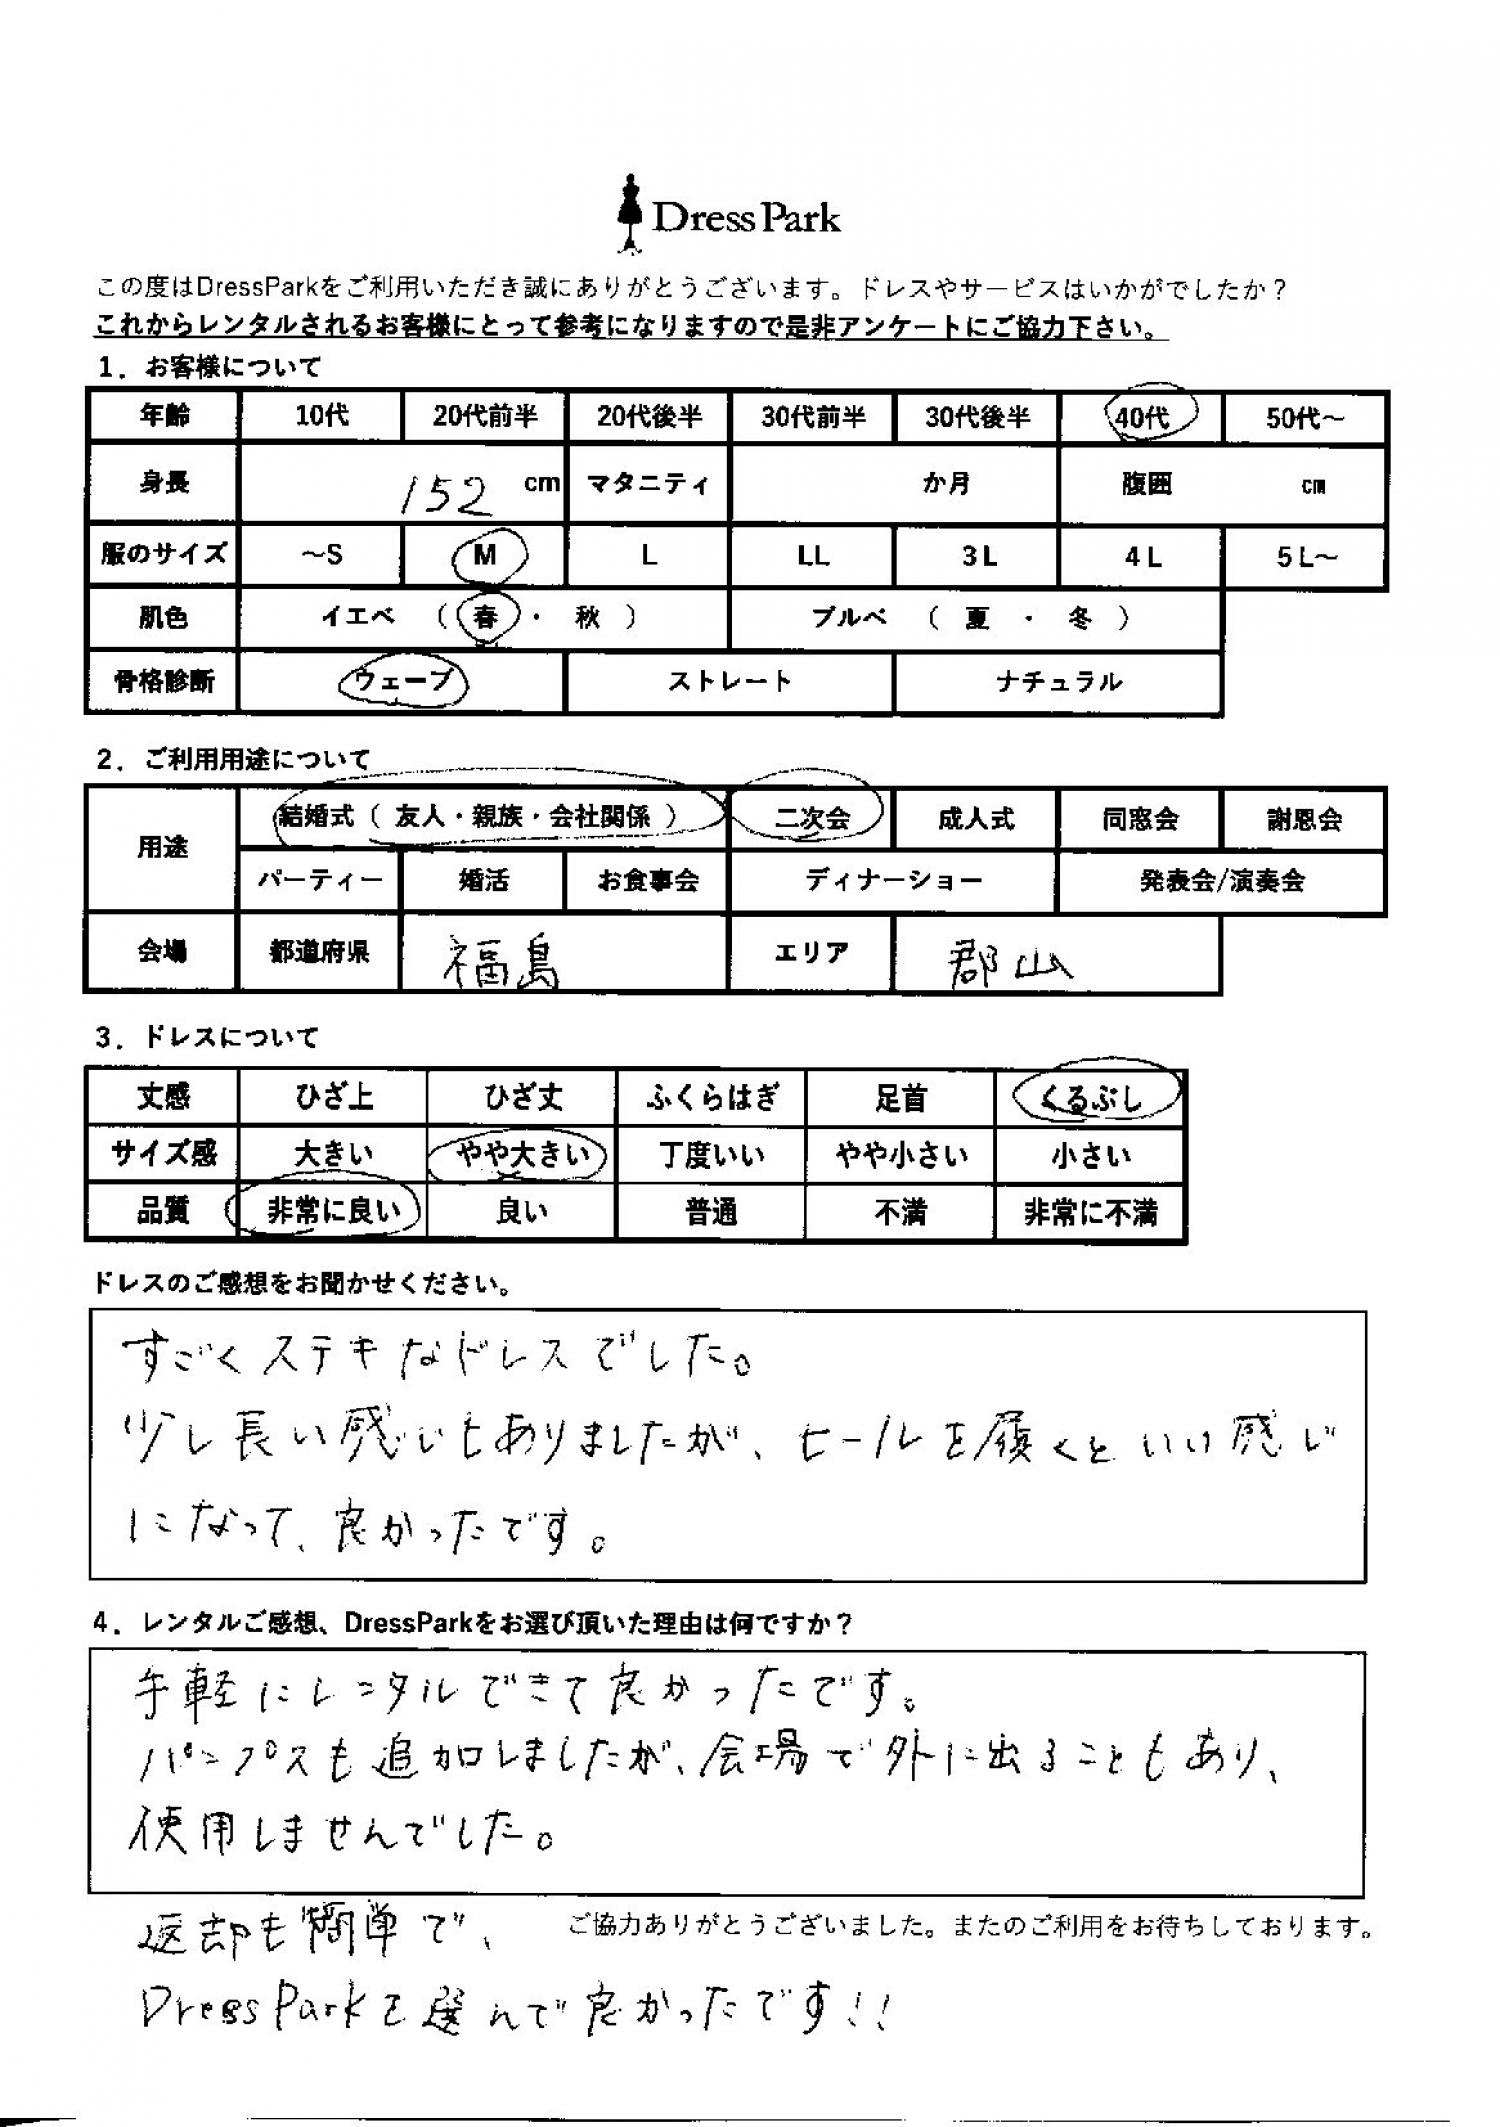 Dress Park
この度はDressParkをご利用いただき誠にありがとうございます。ドレスやサービスはいかがでしたか？
これからレンタルされるお客様にとって参考になりますので是非アンケートにご協力下さい。
1．お客様について
年齢 10代 20代前半 20代後半 30代前半 30代後半 40代 50代～
身長 152 cm マタニティ か月 腹囲 cm
服のサイズ ～S M L LL 3L 4L 5L～
肌色 イエベ （ 春 ・ 秋 ） ブルベ （ 夏 ・ 冬 ）
骨格診断 ウェーブ ストレート ナチュラル
2．ご利用用途について
用途 結婚式（ 友人・親族・会社関係 ） 二次会 成人式 同窓会 謝恩会
パーティー 婚活 お食事会 ディナーショー 発表会/演奏会
会場 都道府県 福島 エリア 郡山
3．ドレスについて
丈感 ひざ上 ひざ丈 ふくらはぎ 足首 くるぶし
サイズ感 大きい やや大きい 丁度いい やや小さい 小さい
品質 非常に良い 良い 普通 不満 非常に不満
ドレスのご感想をお聞かせください。
すごくステキなドレスでした。
少し長い感じもありましたが、ヒールを履くといい感じ
になって、良かったです。
4．レンタルご感想、DressParkをお選び頂いた理由は何ですか？
手軽にレンタルできて良かったです。
パンプスも追加しましたが、会場で外に出ることもあり、
使用しませんでした。
返却も簡単で、
ご協力ありがとうございました。またのご利用をお待ちしております。
DressParkを選んで良かったです！！